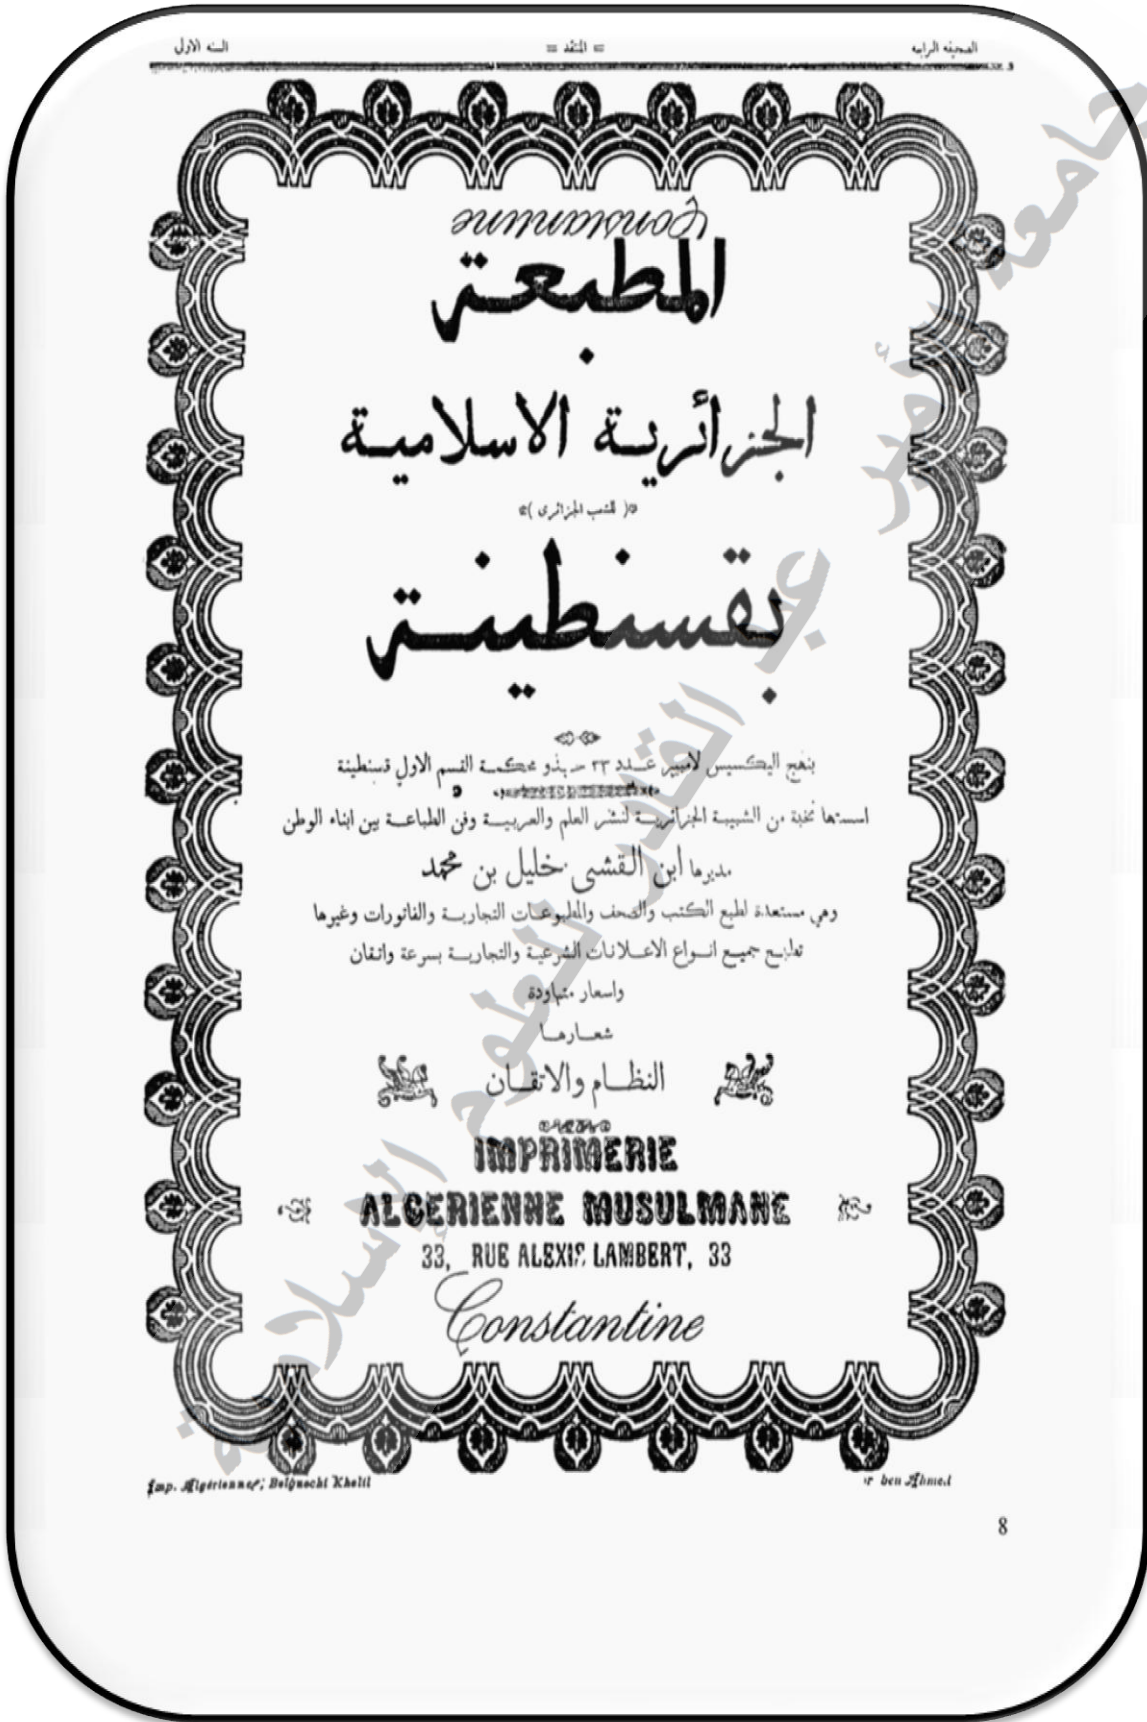 الصحيفة الرابعة = المنتقد = السنة الاولى
Constantine
المطبعة
الجزائرية الاسلامية
( للشعب الجزائرى )
بقسنطينة
بنهج اليكسيس لامبير عدد ٣٣ حذو محكمة القسم الاول قسنطينة
اسستها نخبة من الشبيبة الجزائرية لنشر العلم والعربية وفن الطباعة بين ابناء الوطن
مديرها ابن القشى خليل بن محمد
وهي مستعدة لطبع الكتب والصحف والمطبوعات التجارية والفاتورات وغيرها
تطبع جميع انواع الاعلانات الشرعية والتجارية بسرعة واتقان
واسعار متهاودة
شعارها
النظام والاتقان
IMPRIMERIE
ALGERIENNE MUSULMANE
33, RUE ALEXIS LAMBERT, 33
Constantine
Imp. Algérienne, Belguechi Khelil
ben Ahmed
8
جامعة الأمير عبد القادر للعلوم الإسلامية